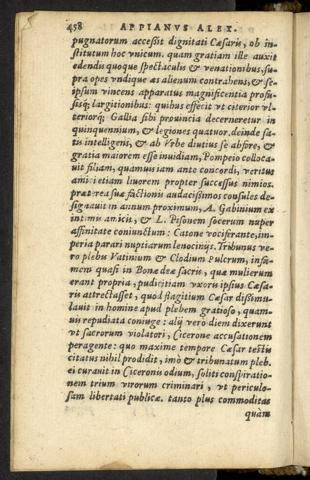 458 APPIANVS ALEX.
pugnatorum accessit dignitati Cæsaris, ob in-
stitutum hoc vnicum. quam gratiam ille auxit
edendis quoque spectaculis & venationibus, su-
pra opes vndique æs alienum contrahens, & se-
ipsum vincens apparatus magnificentia profu-
sisq; largitionibus: quibus effecit vt citerior vl-
teriorq; Gallia sibi prouincia decerneretur in
quinquennium, & legiones quatuor. deinde sa-
tis intelligens, & ab Vrbe diutius se abfore, &
gratia maiorem esse inuidiam, Pompeio colloca-
uit filiam, quamuis iam ante concordi, veritus
amici etiam liuorem propter successus nimios.
præterea suæ factionis audacissimos consules de-
signauit in annum proximum, A. Gabinium ex
intimis amicis, & L. Pisonem socerum nuper
affinitate coniunctum: Catone vociferante, im-
peria parari nuptiarum lenocinijs. Tribunus ve-
ro plebis Vatinium & Clodium Pulcrum, infa-
mem quasi in Bonæ deæ sacris, quæ mulierum
erant propria, pudicitiam vxoris ipsius Cæsa-
ris attrectasset, quod flagitium Cæsar dißimu-
lauit in homine apud plebem gratioso, quam-
uis repudiata coniuge: alij vero diem dixerunt
vt sacrorum violatori, Cicerone accusationem
peragente: quo maxime tempore Cæsar testis
citatus nihil prodidit, imò & tribunatum pleb.
ei curauit in Ciceronis odium, soliti conspiratio-
nem trium virorum criminari, vt periculo-
sam libertati publicæ. tanto plus commoditas
quàm